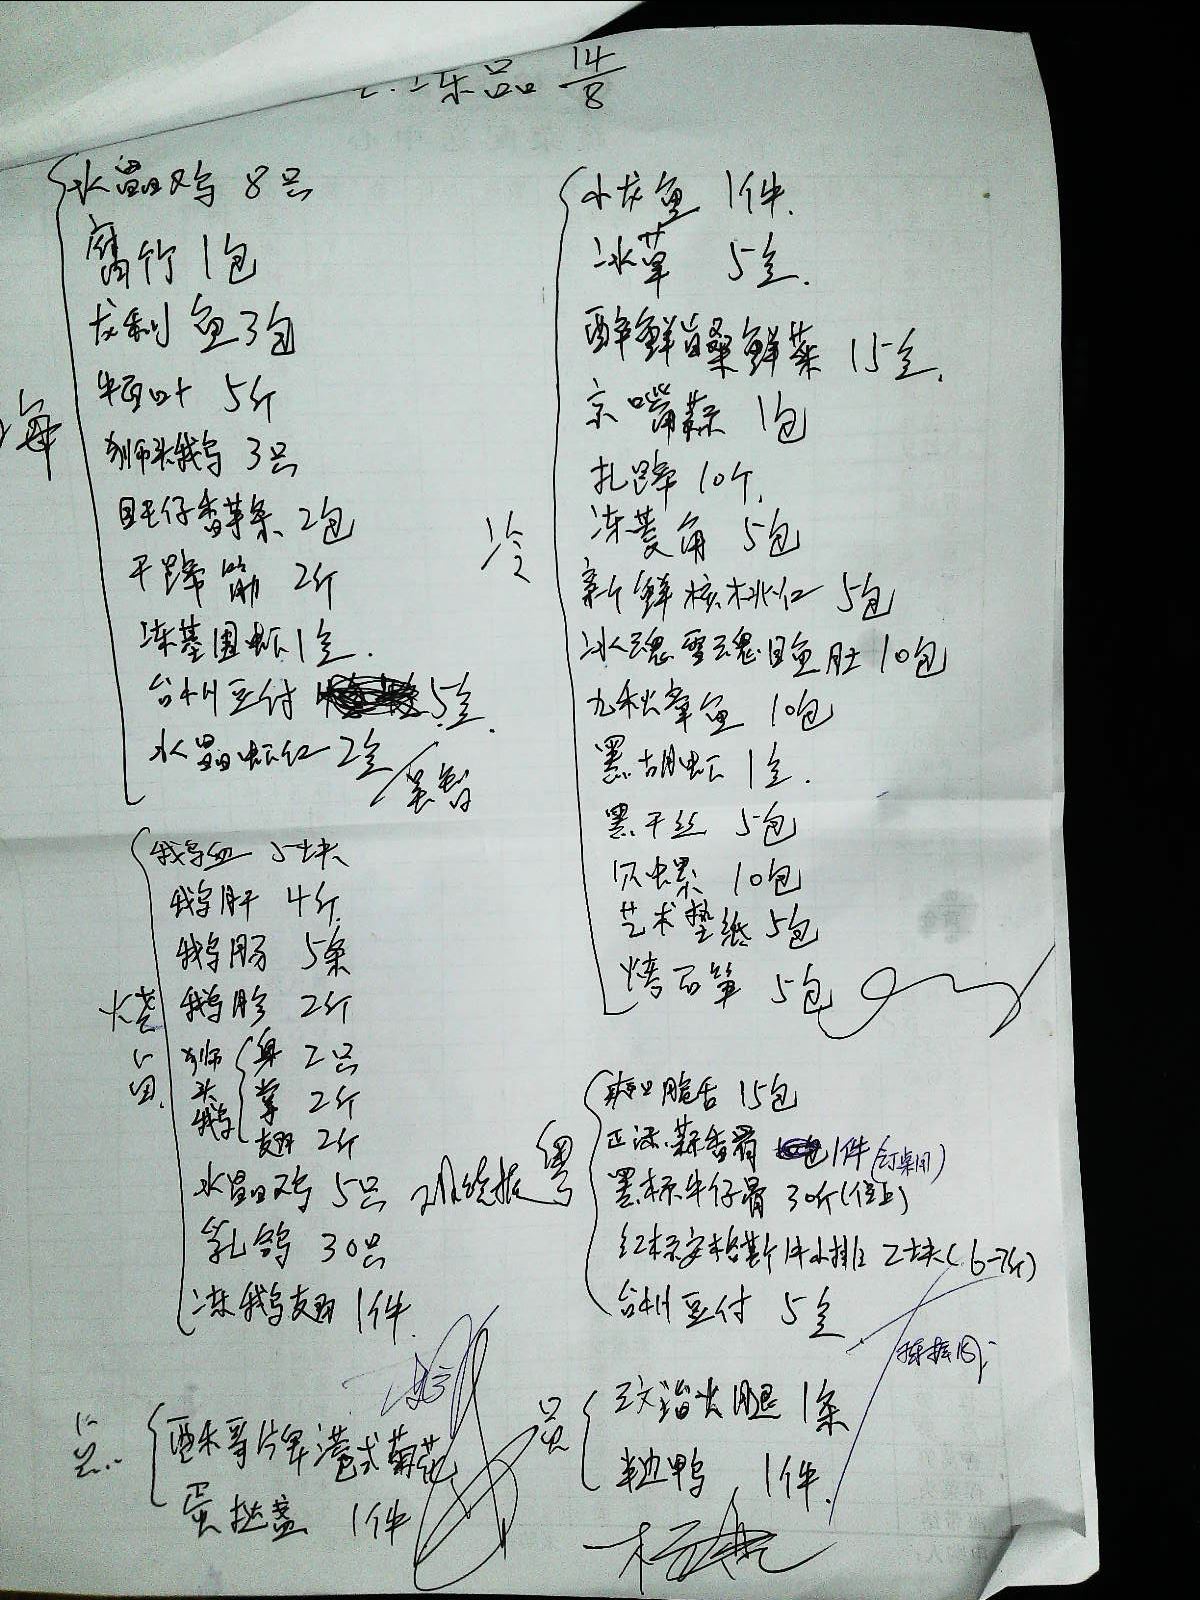 冻品 14/8
海
水晶鸡 8只
腐竹 1包
龙利鱼3包
牛百叶 5斤
狮头鹅 3只
2包
干蹄筋 2斤
冻基围虾1盒.
台州豆付 5盒.
水晶虾仁 2盒
烧
鹅血 5块
鹅肝 4斤.
鹅肠 5条
鹅胗 2斤
狮头鹅 身 2只
掌 2斤
翅 2斤
水晶鸡 5只
乳鸽 30只
冻鹅翅 1件
酥禾哥片牌港式菊花
蛋挞盏 1件
冷
水龙鱼 1件.
冰草 5盒.
15盒.
京嘴蒜 1包
扎蹄 10个.
冻菱角 5包
新鲜核桃仁 5包
冰魂雪魂目鱼肚 10包
九秋章鱼 10包
黑胡虾 1盒.
黑干丝 5包
贝螺 10包
艺术垫纸 5包
烤石笋 5包
粤
爽口脆舌 15包
蒜香骨 1件(订桌用)
黑标牛仔骨 30斤(位上)
红标安格斯牛小排 2块(6-7斤)
台州豆付 5盒
火腿 1条
半边鸭 1件.